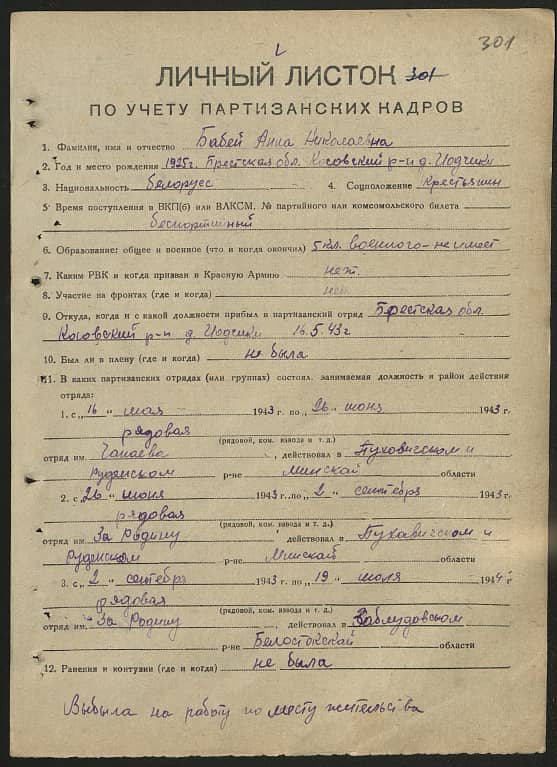 301
ЛИЧНЫЙ ЛИСТОК 301
ПО УЧЕТУ ПАРТИЗАНСКИХ КАДРОВ
1. Фамилия, имя и отчество Бабей Анна Николаевна
2. Год и место рождения 1925г. Брестская обл. Косовский р-н д. Иодчики
3. Национальность белорусс 4. Соцположение Крестьянин
5. Время поступления в ВКП(б) или ВЛКСМ, № партийного или комсомольского билета
беспартийный
6. Образование: общее и военное (что и когда окончил) 5 кл. военного - не имеет
7. Каким РВК и когда призван в Красную Армию нет.
8. Участие на фронтах (где и когда) нет
9. Откуда, когда и с какой должности прибыл в партизанский отряд Брестская обл.
Косовский р-н д. Иодчики 16.5.43г
10. Был ли в плену (где и когда) не была
11. В каких партизанских отрядах (или группах) состоял, занимаемая должность и район действия
отряда:
1. с „16 “ мая 1943 г. по „26 “ июня 1943 г.
рядовая
(рядовой, ком. взвода и т. д.)
отряд им. Чапаева, действовал в Пуховичском и
Руденском р-не Минской области
2. с „26 “ июня 1943 г. по „2 “ сентебря 1943 г.
рядовая
(рядовой, ком. взвода и т. д.)
отряд им. За Родину действовал в Пухавичском и
Руденском р-не Минской области
3. с „2 “ сентебрь 1943 г. по „19 “ июля 1944 г.
рядовая
(рядовой, ком. взвода и т. д.)
отряд им. За Родину, действовал в Заблудовском
р-не Белостокской области
12. Ранения и контузии (где и когда) не была
Выбыла на работу по месту жительства